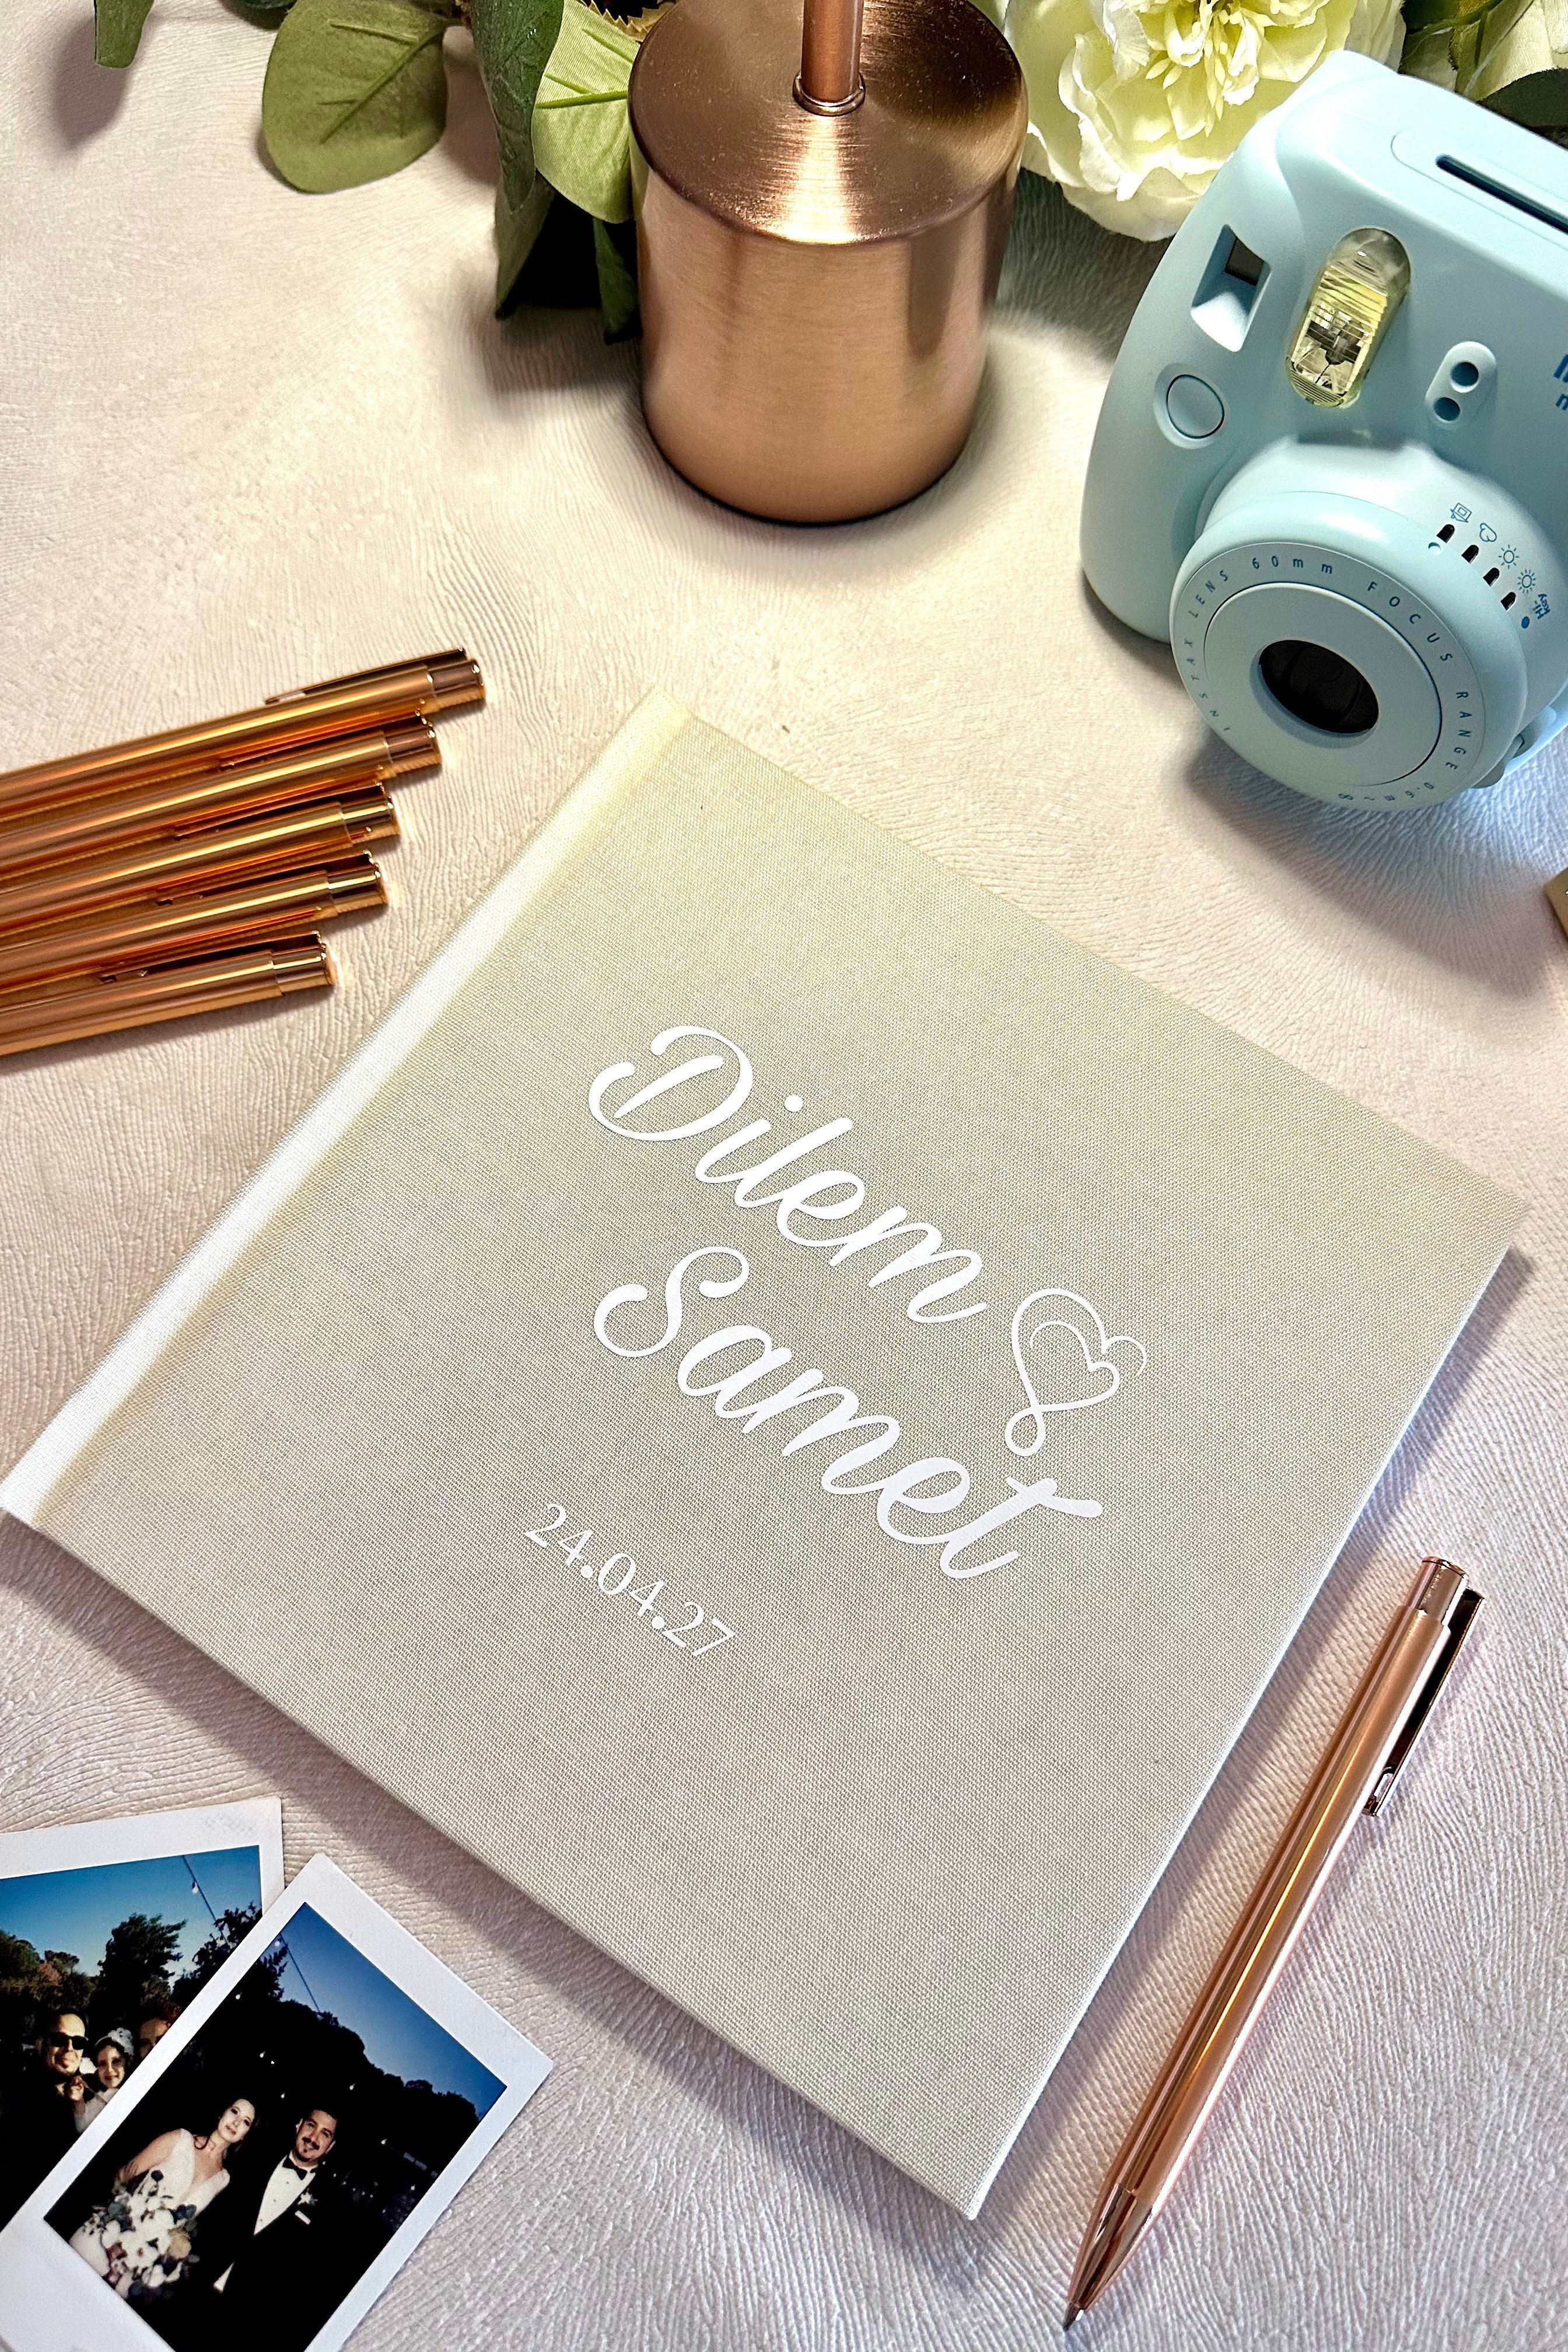 Dilem
Samet
24.04.27
INSTAX LENS 60mm FOCUS RANGE 0.6m~∞